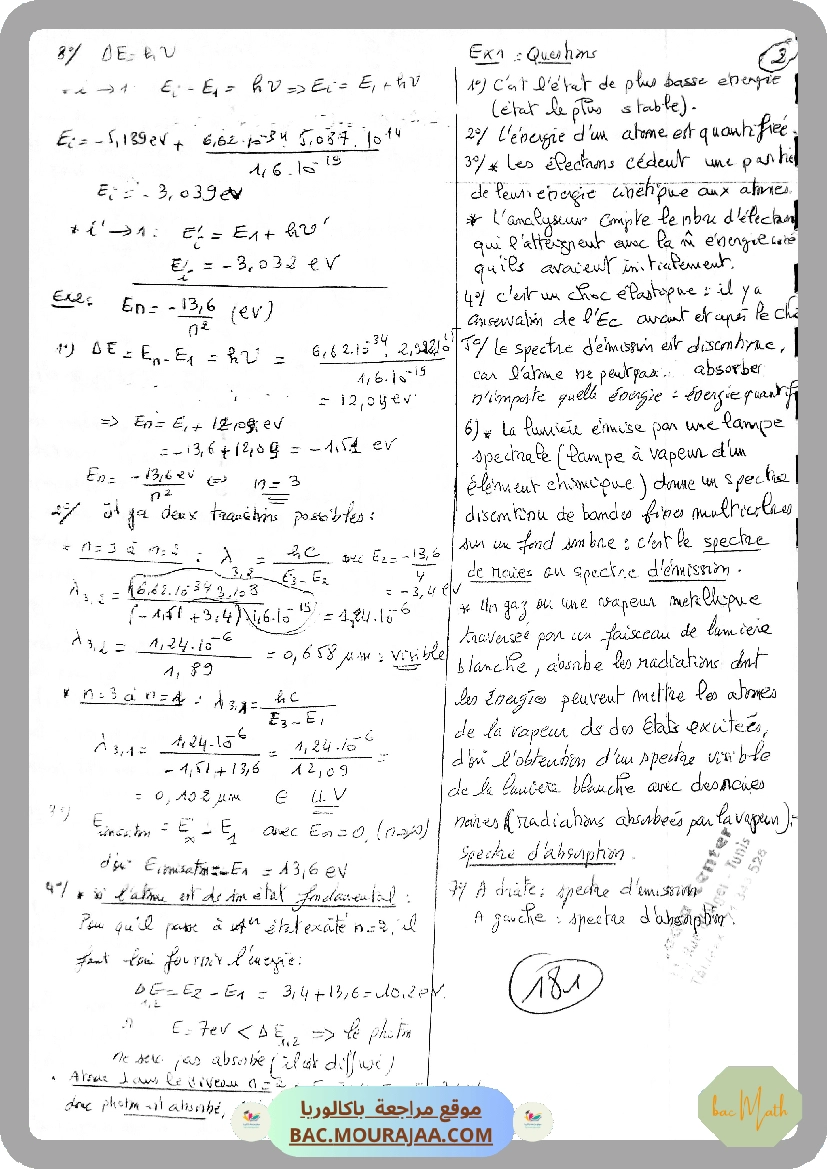 8°/ ΔE = hν
i → 1: Ei - E1 = hν => Ei = E1 + hν
Ei = -5,139 eV + 6,62.10^-34 . 5,037.10^14 / 1,6.10^-19
Ei = -3,039 eV
* i' → 1: E'i = E1 + hν'
E'i = -3,032 eV
Ex2: En = -13,6 / n² (eV)
1°) ΔE = En - E1 = hν = 6,62.10^-34 . / 1,6.10^-19
= 12,09 eV
=> En = E1 + 12,09 eV
= -13,6 + 12,09 = -1,51 eV
En = -13,6 eV / n² <=> n = 3
2°/ il ya deux transitions possibles :
= n=3 à n=2 : λ3,2 = hC / E3 - E2 avec E2 = -13,6 / 4
= -3,4 eV
λ3,2 = 6,62.10^-34 . 3.10^8 / (-1,51 + 3,4) 1,6.10^-19 = 1,24.10^-6
λ3,2 = 1,24.10^-6 / 1,89 = 0,658 μm : visible
* n=3 à n=1 : λ3,1 = hC / E3 - E1
λ3,1 = 1,24.10^-6 / -1,51 + 13,6 = 1,24.10^-6 / 12,09 =
= 0,102 μm ∈ U.V
E = E∞ - E1 avec En = 0, (n→∞)
d'où E = -E1 = 13,6 eV
4°/ * si l'atome est ds son état fondamental :
Pour qu'il passe à état excité n=2, il
faut lui fournir l'énergie :
ΔE1,2 = E2 - E1 = -3,4 + 13,6 = 10,2 eV.
E = 7eV < ΔE1,2 => le photon
ne sera pas absorbé (il est diffusé)
. Atome dans le niveau n=2
donc photon est absorbé,
Ex1 : Questions
2
1°) C'est l'état de plus basse énergie
(état le plus stable).
2°/ L'énergie d'un atome est quantifiée.
3°/ * Les électrons cèdent une partie
de leur énergie cinétique aux atomes.
* L'analyseur compte le nbre d'électron
qui l'atteignent avec la m̂ énergie
qu'ils avaient initialement.
4°/ c'est un choc élastique : il y a
conservation de l'Ec avant et après le
5°/ Le spectre d'émission est discontinue,
car l'atome ne peut pas absorber
n'importe quelle énergie : énergie
6) * La lumière émise par une lampe
spectrale (lampe à vapeur d'un
élément chimique) donne un spectre
discontinu de bandes fines multicolores
sur un fond sombre : c'est le spectre
de raies ou spectre d'émission.
* Un gaz ou une vapeur métallique
traversée par un faisceau de lumière
blanche, absorbe les radiations dont
les énergies peuvent mettre les atomes
de la vapeur ds des états excités,
d'où l'obtention d'un spectre visible
de la lumière blanche avec des raies
noires (radiations absorbées par la vapeur) :
spectre d'absorption.
7°/ A droite : spectre d'émission
A gauche : spectre d'absorption.
181
موقع مراجعة باكالوريا
BAC.MOURAJAA.COM
bacMath